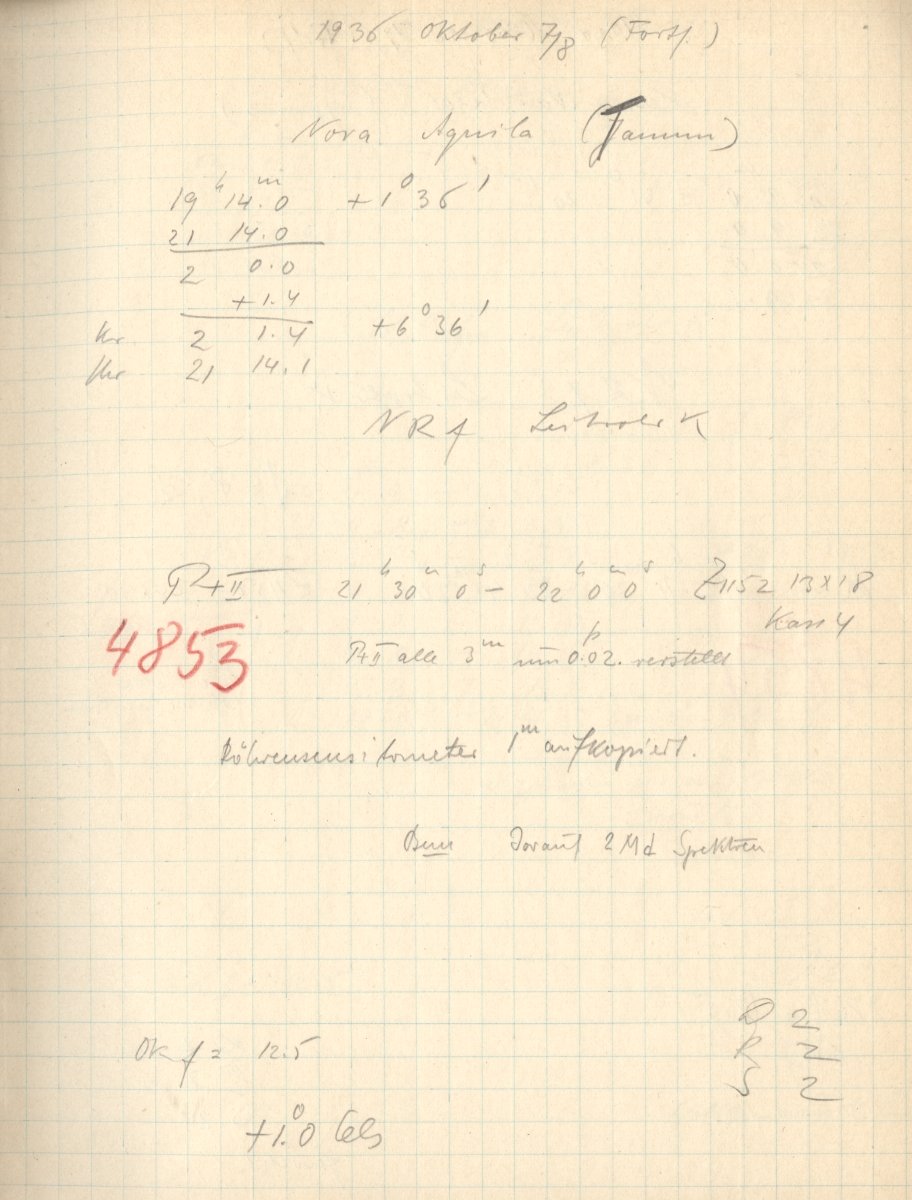 1936 Oktober 7/8 (Forts.)
Nova Aquila (Tamm)
19ʰ 14ᵐ.0 +1° 36'
21 14.0
2 0.0
+1.4
2 1.4 +6° 36'
Uhr 21 14.1
NRf
P+II 21ʰ 30ᵐ 0ˢ – 22ʰ 0ᵐ 0ˢ Z1152 13x18
Kass 4
4853
P+II alle 3ᵐ um 0.02. verstellt
Röhrensensitometer 1ᵐ aufkopiert.
Bem Darauf 2 Md Spektren
D 2
R 2
S 2
OK f = 12.5
+1.°0 Cels